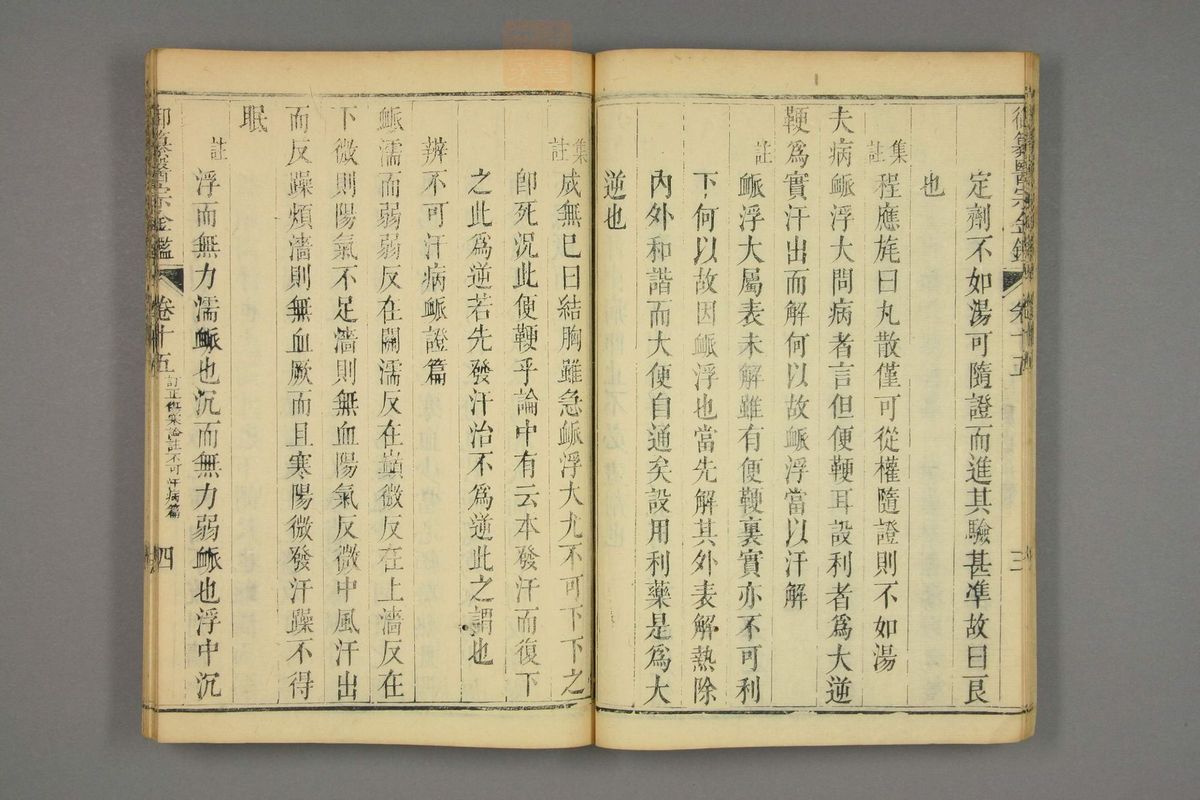 御纂醫宗金鑑 卷十五 三
定劑不如湯可隨證而進其驗甚凖故曰良
也
集註 程應旄曰丸散僅可從權隨證則不如湯
夫病脈浮大問病者言但便鞕耳設利者爲大逆
鞕爲實汗出而解何以故脈浮當以汗解
註 脈浮大屬表未解雖有便鞕裏實亦不可利
下何以故因脈浮也當先解其外表解熱除
內外和諧而大便自通矣設用利藥是爲大
逆也
集註 成無已曰結胸雖急脈浮大尤不可下下之
卽死況此便鞕乎論中有云本發汗而復下
之此爲逆若先發汗治不爲逆此之謂也
辨不可汗病脈證篇
脈濡而弱弱反在關濡反在巔微反在上濇反在
下微則陽氣不足濇則無血陽氣反微中風汗出
而反躁煩濇則無血厥而且寒陽微發汗躁不得
眠
註 浮而無力濡脈也沉而無力弱脈也浮中沉
御纂醫宗金鑑 卷十五 訂正傷寒論註不可汗病篇 四